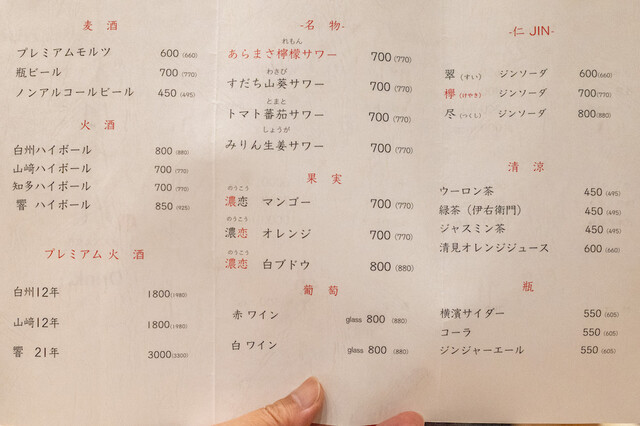 麦 酒
プレミアムモルツ 600 (660)
瓶ビール 700 (770)
ノンアルコールビール 450 (495)
火 酒
白州ハイボール 800 (880)
山﨑ハイボール 700 (770)
知多ハイボール 700 (770)
響 ハイボール 850 (925)
プレミアム火 酒
白州12年 1800 (1980)
山﨑12年 1800 (1980)
響 21年 3000 (3300)
-名 物-
れもん
あらまさ檸檬サワー 700 (770)
わさび
すだち山葵サワー 700 (770)
とまと
トマト蕃茄サワー 700 (770)
しょうが
みりん生姜サワー 700 (770)
果 実
のうこう
濃恋 マンゴー 700 (770)
のうこう
濃恋 オレンジ 700 (770)
のうこう
濃恋 白ブドウ 800 (880)
葡 萄
赤 ワイン glass 800 (880)
白 ワイン glass 800 (880)
-仁 JIN-
翠 (すい) ジンソーダ 600 (660)
欅 (けやき) ジンソーダ 700 (770)
尽 (つくし) ジンソーダ 800 (880)
清 涼
ウーロン茶 450 (495)
緑茶 (伊右衛門) 450 (495)
ジャスミン茶 450 (495)
清見オレンジジュース 600 (660)
瓶
横濱サイダー 550 (605)
コーラ 550 (605)
ジンジャーエール 550 (605)